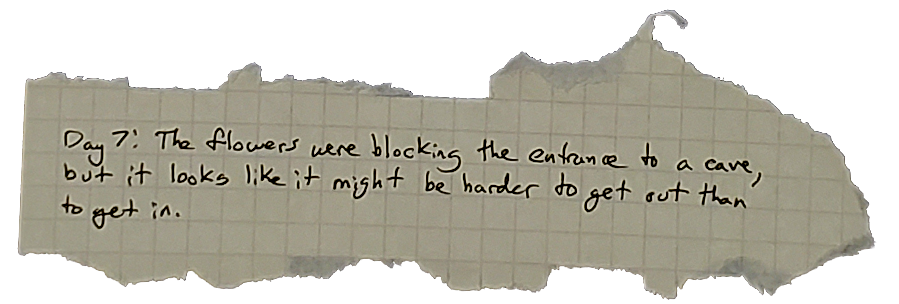 Day 7: The flowers were blocking the entrance to a cave,
but it looks like it might be harder to get out than
to get in.